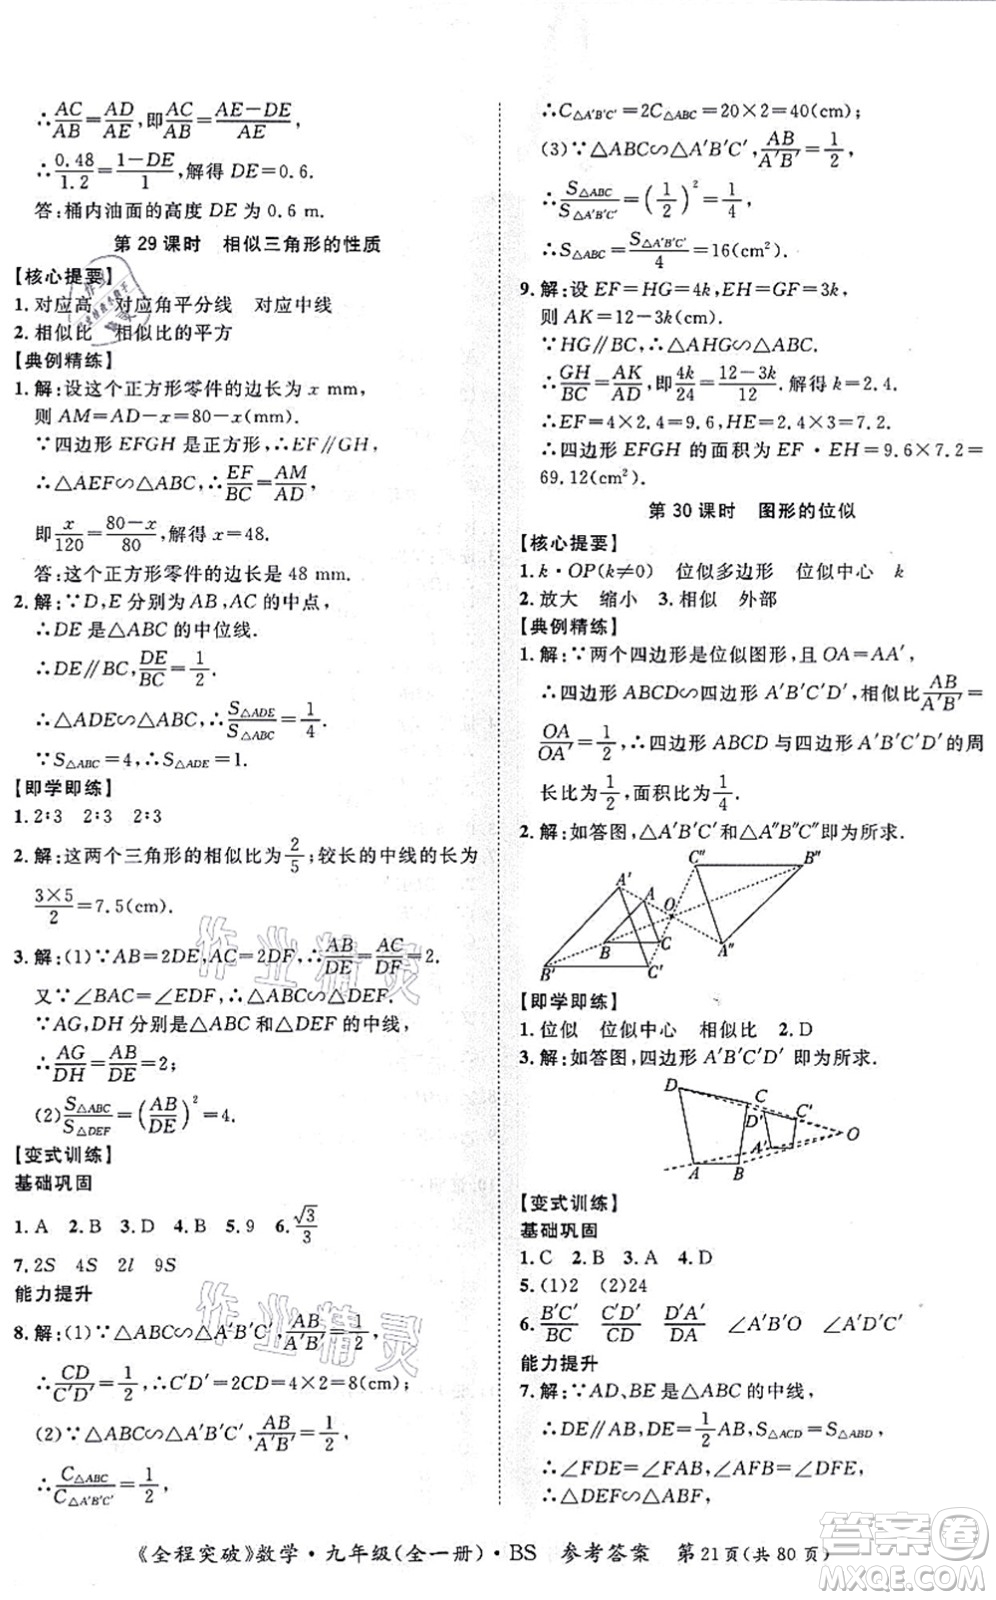 ∴AC/AB=AD/AE,即AC/AB=(AE−DE)/AE,
∴0.48/1.2=(1−DE)/1,解得 DE=0.6.
答:桶内油面的高度 DE 为 0.6 m.
第 29 课时　相似三角形的性质
【核心提要】
1. 对应高　对应角平分线　对应中线
2. 相似比　相似比的平方
【典例精练】
1. 解:设这个正方形零件的边长为 x mm,
则 AM=AD−x=80−x(mm).
∵四边形 EFGH 是正方形,∴EF∥GH,
∴△AEF∽△ABC,∴EF/BC=AM/AD,
即x/120=(80−x)/80,解得 x=48.
答:这个正方形零件的边长是 48 mm.
2. 解:∵D,E 分别为 AB,AC 的中点,
∴DE 是△ABC 的中位线.
∴DE∥BC,DE/BC=1/2.
∴△ADE∽△ABC,∴S△ADE/S△ABC=1/4.
∵S△ABC=4,∴S△ADE=1.
【即学即练】
1. 2∶3　2∶3　2∶3
2. 解:这两个三角形的相似比为2/5;较长的中线的长为
(3×5)/2=7.5(cm).
3. 解:(1)∵AB=2DE,AC=2DF,∴AB/DE=AC/DF=2.
又∵∠BAC=∠EDF,∴△ABC∽△DEF.
∵AG,DH 分别是△ABC 和△DEF 的中线,
∴AG/DH=AB/DE=2;
(2)S△ABC/S△DEF=(AB/DE)²=4.
【变式训练】
基础巩固
1. A　2. B　3. D　4. B　5. 9　6. √3/3
7. 2S　4S　2l　9S
能力提升
8. 解:(1)∵△ABC∽△A′B′C′,AB/A′B′=1/2,
∴CD/C′D′=1/2,∴C′D′=2CD=4×2=8(cm);
(2)∵△ABC∽△A′B′C′,AB/A′B′=1/2,
∴C△ABC/C△A′B′C′=1/2,
∴C△A′B′C′=2C△ABC=20×2=40(cm);
(3)∵△ABC∽△A′B′C′,AB/A′B′=1/2,
∴S△ABC/S△A′B′C′=(1/2)²=1/4,
∴S△ABC=S△A′B′C′/4=64/4=16(cm²).
9. 解:设 EF=HG=4k,EH=FG=3k,
则 AK=12−3k.
∵HG∥BC,∴△AHG∽△ABC.
∴GH/BC=AK/AD,即4k/24=(12−3k)/12,解得 k=2.4.
∴EF=4×2.4=9.6,HE=2.4×3=7.2.
∴四边形 EFGH 的面积为 EF·EH=9.6×7.2=
69.12(cm²).
第 30 课时　图形的位似
【核心提要】
1. k·OP(k≠0)　位似多边形　位似中心　k
2. 放大　缩小　3. 相似　外部
【典例精练】
1. 解:∵两个四边形是位似图形,且 OA=AA′,
∴四边形 ABCD∽四边形 A′B′C′D′,相似比AB/A′B′=
OA/OA′=1/2,∴四边形 ABCD 与四边形 A′B′C′D′的周
长比为1/2,面积比为1/4.
2. 解:如答图,△A′B′C′和△A″B″C″即为所求.
C″
B″
A′
A
O
B
C
A″
B′
C′
【即学即练】
1. 位似　位似中心　相似比　2. D
3. 解:如答图,四边形 A′B′C′D′ 即为所求.
D
C
D′
C′
O
A′
A
B
【变式训练】
基础巩固
1. C　2. B　3. A　4. D
5. (1)2　(2)24
6. B′C′/BC　C′D′/CD　D′A′/DA　∠A′B′O　∠A′D′C′
能力提升
7. 解:∵AD、BE 是△ABC 的中线,
∴DE∥AB,DE=1/2AB,S△ACD=S△ABD.
∴∠FDE=∠FAB,∠FED=∠FBA,
∴△FDE∽△FAB,
《全程突破》数学·九年级(全一册)·BS　参考答案　第 21 页(共 80 页)
作业精灵
作业精灵
答案圈
MXQE.COM